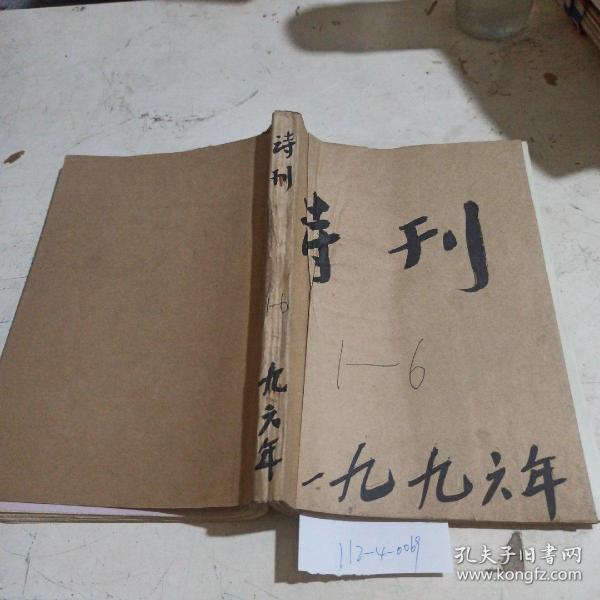 诗刊
1-6
九六年
诗刊
1—6
一九九六年
112-4-0069
孔夫子旧书网
www.kongfz.com